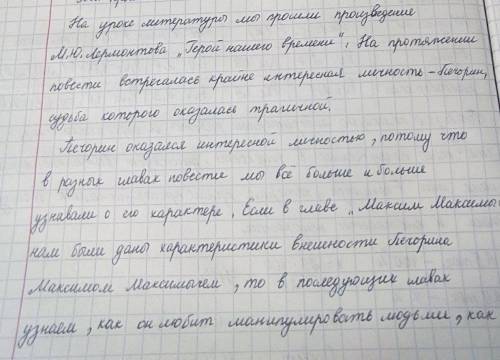 На уроке литературы мы прошли произведение
М.Ю.Лермонтова „Герой нашего времени". На протяжении
повести встречалась крайне интересная личность – Печорин,
судьба которого оказалась трагичной.
Печорин оказался интересной личностью, потому что
в разных главах повести мы всё больше и больше
узнавали о его характере. Если в главе „Максим Максимы
нам были даны характеристики внешности Печорина
Максимом Максимычем, то в последующих главах
узнаем, как он любит манипулировать людьми, как